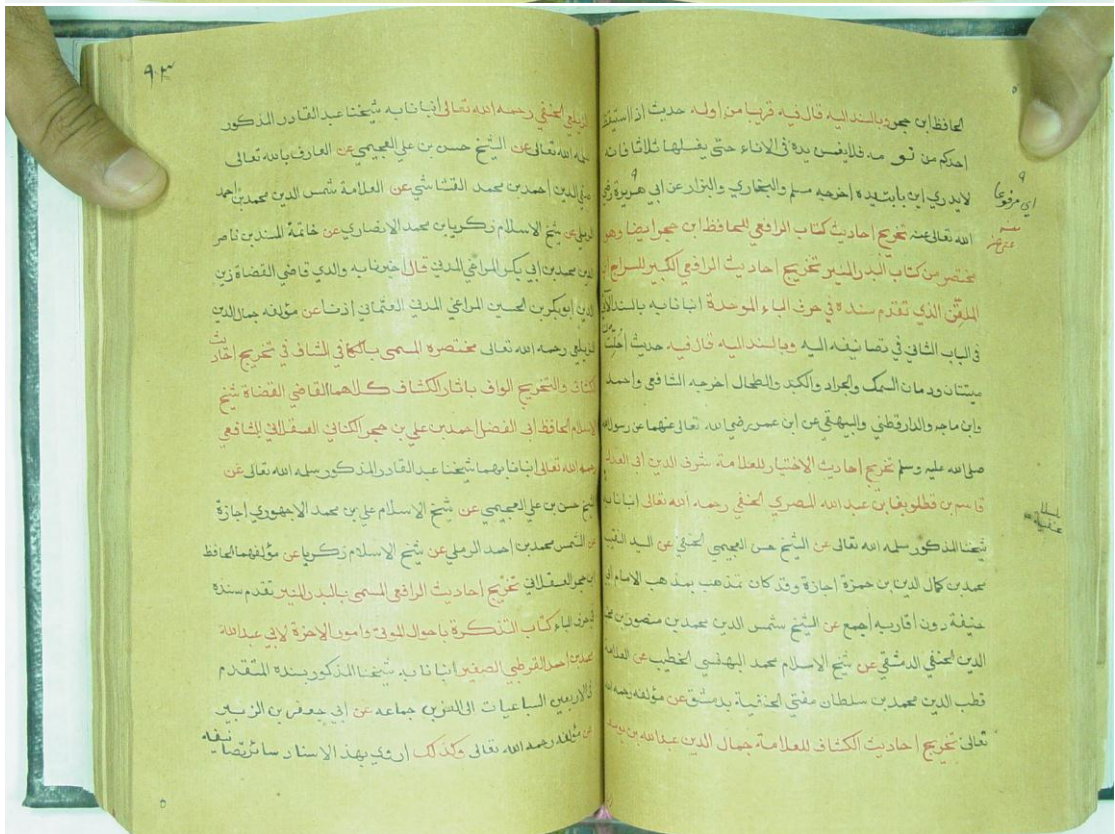 الحافظ ابن حجر وبالسند اليه قال فيه قريبا من اوله حديث اذا استيقظ
احدكم من نومه فلا يغمس يده في الاناء حتى يغسلها ثلاثا فانه
لا يدري اين باتت يده اخرجه مسلم والبخاري والبزار عن ابي هريرة رضي
اي مرفوعا
الله تعالى عنه تخريج احاديث كتاب الرافعي للحافظ ابن حجر ايضا وهو
مختصر من كتاب البدر المنير تخريج احاديث الرافعي الكبير للسراج ابن
الملقن الذي تقدم سنده في حرف الباء الموحدة انبانا به بالسند الآتي
في الباب الثاني في تصانيفه اليه وبالسند اليه قال فيه حديث احلت لنا
ميتتان ودمان السمك والجراد والكبد والطحال اخرجه الشافعي واحمد
وابن ماجه والدارقطني والبيهقي عن ابن عمر رضي الله تعالى عنهما عن رسول الله
صلى الله عليه وسلم تخريج احاديث الاختيار للعلامة شرف الدين ابي العدل
قاسم بن قطلوبغا بن عبد الله المصري الحنفي رحمه الله تعالى انبانا به
شيخنا المذكور سلمه الله تعالى عن الشيخ حسن العجيمي الحنفي عن السيد النقيب
محمد بن كمال الدين بن حمزة اجازة وقد كان تمذهب بمذهب الامام ابي
حنيفة دون اقاربه اجمع عن الشيخ شمس الدين محمد بن منصور بن محب
الدين الحنفي الدمشقي عن شيخ الاسلام محمد البهنسي الخطيب عن العلامة
قطب الدين محمد بن سلطان مفتي الحنفية بدمشق عن مؤلفه رحمه الله
تعالى تخريج احاديث الكشاف للعلامة جمال الدين عبد الله بن يوسف
٩٣
الزيلعي الحنفي رحمه الله تعالى انبانا به شيخنا عبد القادر المذكور
سلمه الله تعالى عن الشيخ حسن بن علي العجيمي عن العارف بالله تعالى
صفي الدين احمد بن محمد القشاشي عن العلامة شمس الدين محمد بن احمد
الرملي عن شيخ الاسلام زكريا بن محمد الانصاري عن خاتمة المسندين ناصر
الدين محمد بن ابي بكر المراغي المدني قال اخبرنا به والدي قاضي القضاة زين
الدين ابو بكر بن الحسين المراغي المدني العثماني اذنا عن مؤلفه جمال الدين
الزيلعي رحمه الله تعالى مختصره المسمى بالكافي الشاف في تخريج احاديث
الكشاف والتخريج الواف باثار الكشاف كلاهما للقاضي القضاة شيخ
الاسلام الحافظ ابي الفضل احمد بن علي بن حجر الكناني العسقلاني الشافعي
رحمه الله تعالى انبانا بهما شيخنا عبد القادر المذكور سلمه الله تعالى عن
الشيخ حسن بن علي العجيمي عن شيخ الاسلام علي بن محمد الاجهوري اجازة
عن الشمس محمد بن احمد الرملي عن شيخ الاسلام زكريا عن مؤلفهما الحافظ
ابن حجر العسقلاني تخريج احاديث الرافعي المسمى بالبدر المنير تقدم سنده
في حرف الباء كتاب التذكرة باحوال الموتى وامور الاخرة لابي عبد الله
محمد بن احمد القرطبي الصغير انبانا به شيخنا المذكور بسنده المتقدم
في الاربعين السباعيات الى العز بن جماعه عن ابي جعفر بن الزبير
عن مؤلفه رحمه الله تعالى وكذلك اروي بهذا الاسناد سائر تصانيفه